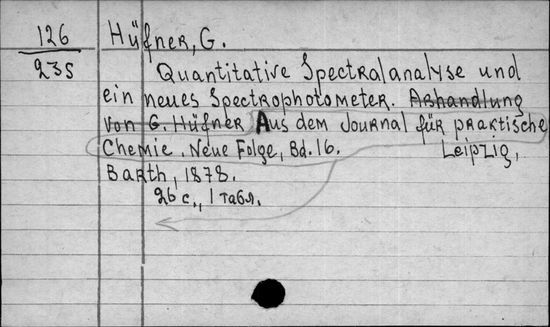 126
235
Hüfner, G.
Quantitative Spectralanalyse und
ein neues Spectrophotometer. Abhandlung
von G. Hüfner Aus dem Journal für praktische
Chemie. Neue Folge, Bd. 16. Leipzig,
Barth, 1878.
26 с., 1 табл.